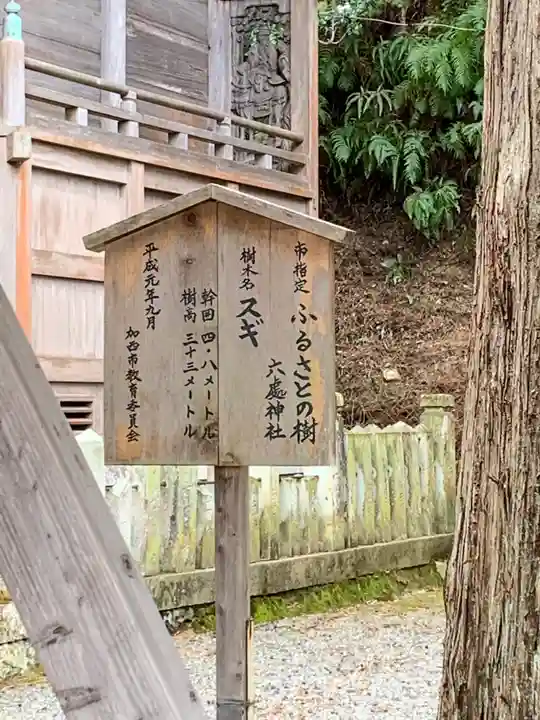 市指定 ふるさとの樹
六處神社
樹木名 スギ
幹囲 四・八メートル
樹高 三十三メートル
平成元年九月
加西市教育委員会